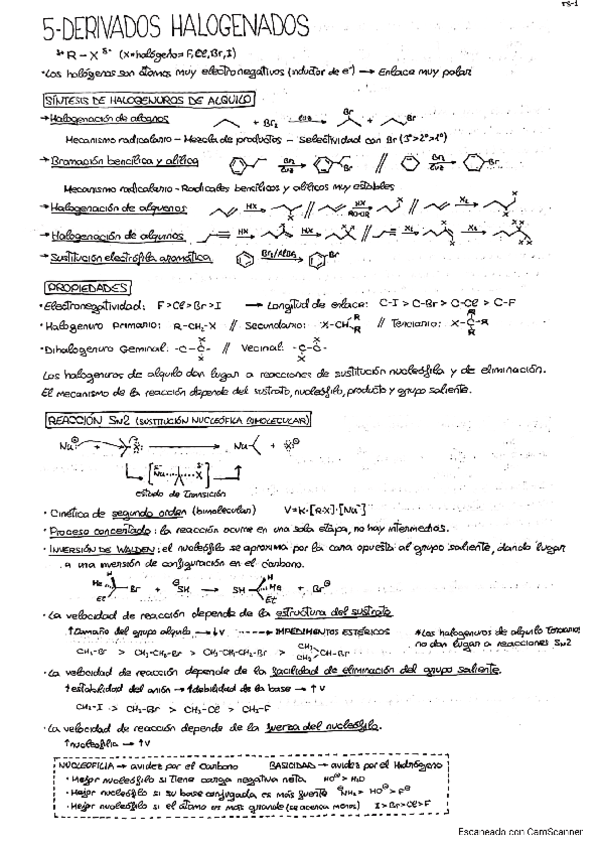 T5-1
5-DERIVADOS HALOGENADOS
δ+ R - X δ- (X=halógeno= F, Cl, Br, I)
· Los halógenos son átomos muy electronegativos (inductor de e⁻) → Enlace muy polar
SÍNTESIS DE HALOGENUROS DE ALQUILO
→ Halogenación de alcanos + Br₂ luz Br + Br
Mecanismo radicalario - Mezcla de productos - Selectividad con Br (3º>2º>1º)
→ Bromación bencílica y alílica Br₂ luz Br // Br₂ luz Br
Mecanismo radicalario - Radicales bencílicos y alílicos muy estables
→ Halogenación de alquenos HX X // HX ROOR X // X₂ X X
→ Halogenación de alquinos HX X HX X X // X₂ X X X₂ X X X X
→ Sustitución electrófila aromática Br₂/AlBr₃ Br
PROPIEDADES
· Electronegatividad: F > Cl > Br > I → Longitud de enlace: C-I > C-Br > C-Cl > C-F
· Halogenuro Primario: R-CH₂-X // Secundario: X-CH R R // Terciario: X-C-R R R
· Dihalogenuro Geminal: -C-C- X X // Vecinal: -C-C- X X
Los halogenuros de alquilo dan lugar a reacciones de sustitución nucleófila y de eliminación.
El mecanismo de la reacción depende del sustrato, nucleófilo, producto y grupo saliente.
REACCIÓN SN2 (SUSTITUCIÓN NUCLEÓFILA BIMOLECULAR)
Nu:⊖ + X: → Nu + :X:⊖
[Nu X]
estado de Transición
· Cinética de segundo orden (bimolecular) V=K·[R-X]·[Nu⁻]
· Proceso concertado: la reacción ocurre en una sola etapa, no hay intermedios.
· INVERSIÓN DE WALDEN: el nucleófilo se aproxima por la cara opuesta al grupo saliente, dando lugar
a una inversión de configuración en el carbono.
Me H Et Br + ⊖SH → SH H Me Et + Br⊖
· La velocidad de reacción depende de la estructura del sustrato
↑Tamaño del grupo alquilo → ↓V → IMPEDIMENTOS ESTÉRICOS *Los halogenuros de alquilo Terciarios
no dan lugar a reacciones SN2
CH₃-Br > CH₃-CH₂-Br > CH₃-CH₂-CH₂-Br > CH₃ CH₃ CH-Br
· La velocidad de reacción depende de la facilidad de eliminación del grupo saliente.
↑estabilidad del anión → ↑debilidad de la base → ↑V
CH₃-I > CH₃-Br > CH₃-Cl > CH₃-F
· La velocidad de reacción depende de la fuerza del nucleófilo.
↑nucleofilia → ↑V
NUCLEOFILIA → avidez por el Carbono BASICIDAD → avidez por el Hidrógeno
· Mejor nucleófilo si Tiene carga negativa neta HO⊖ > H₂O
· Mejor nucleófilo si su base conjugada es más fuerte ⊖NH₂ > HO⊖ > F⊖
· Mejor nucleófilo si el átomo es más grande I > Br > Cl > F
Escaneado con CamScanner